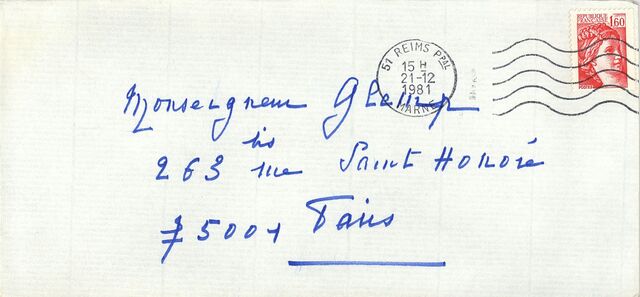 RÉPUBLIQUE FRANÇAISE
1,60
51 REIMS PPAL
15 H
21-12
1981
MARNE
Monseigneur Glemp
bis
263 rue Saint Honoré
75001 Paris